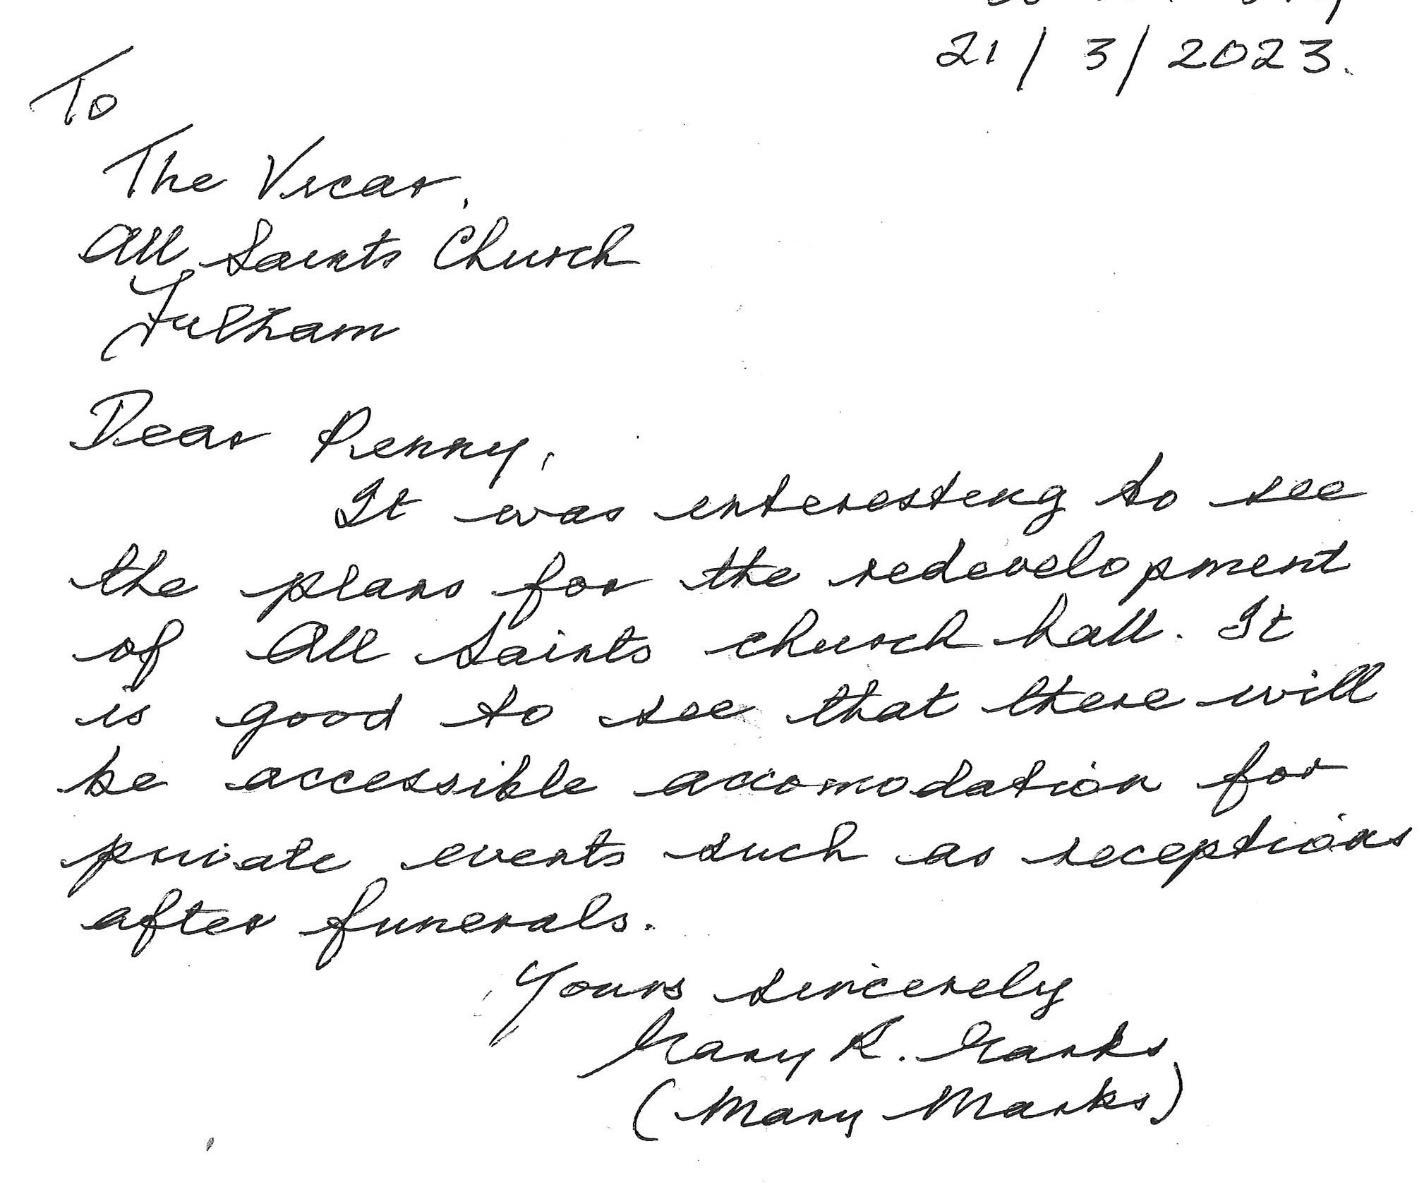 21/3/2023.
To
The Vicar,
All Saints Church
Fulham
Dear Penny,
It was interesting to see
the plans for the redevelopment
of All Saints church hall. It
is good to see that there will
be accessible accomodation for
private events such as receptions
after funerals.
Yours sincerely
Mary R. Marks
(Mary Marks)